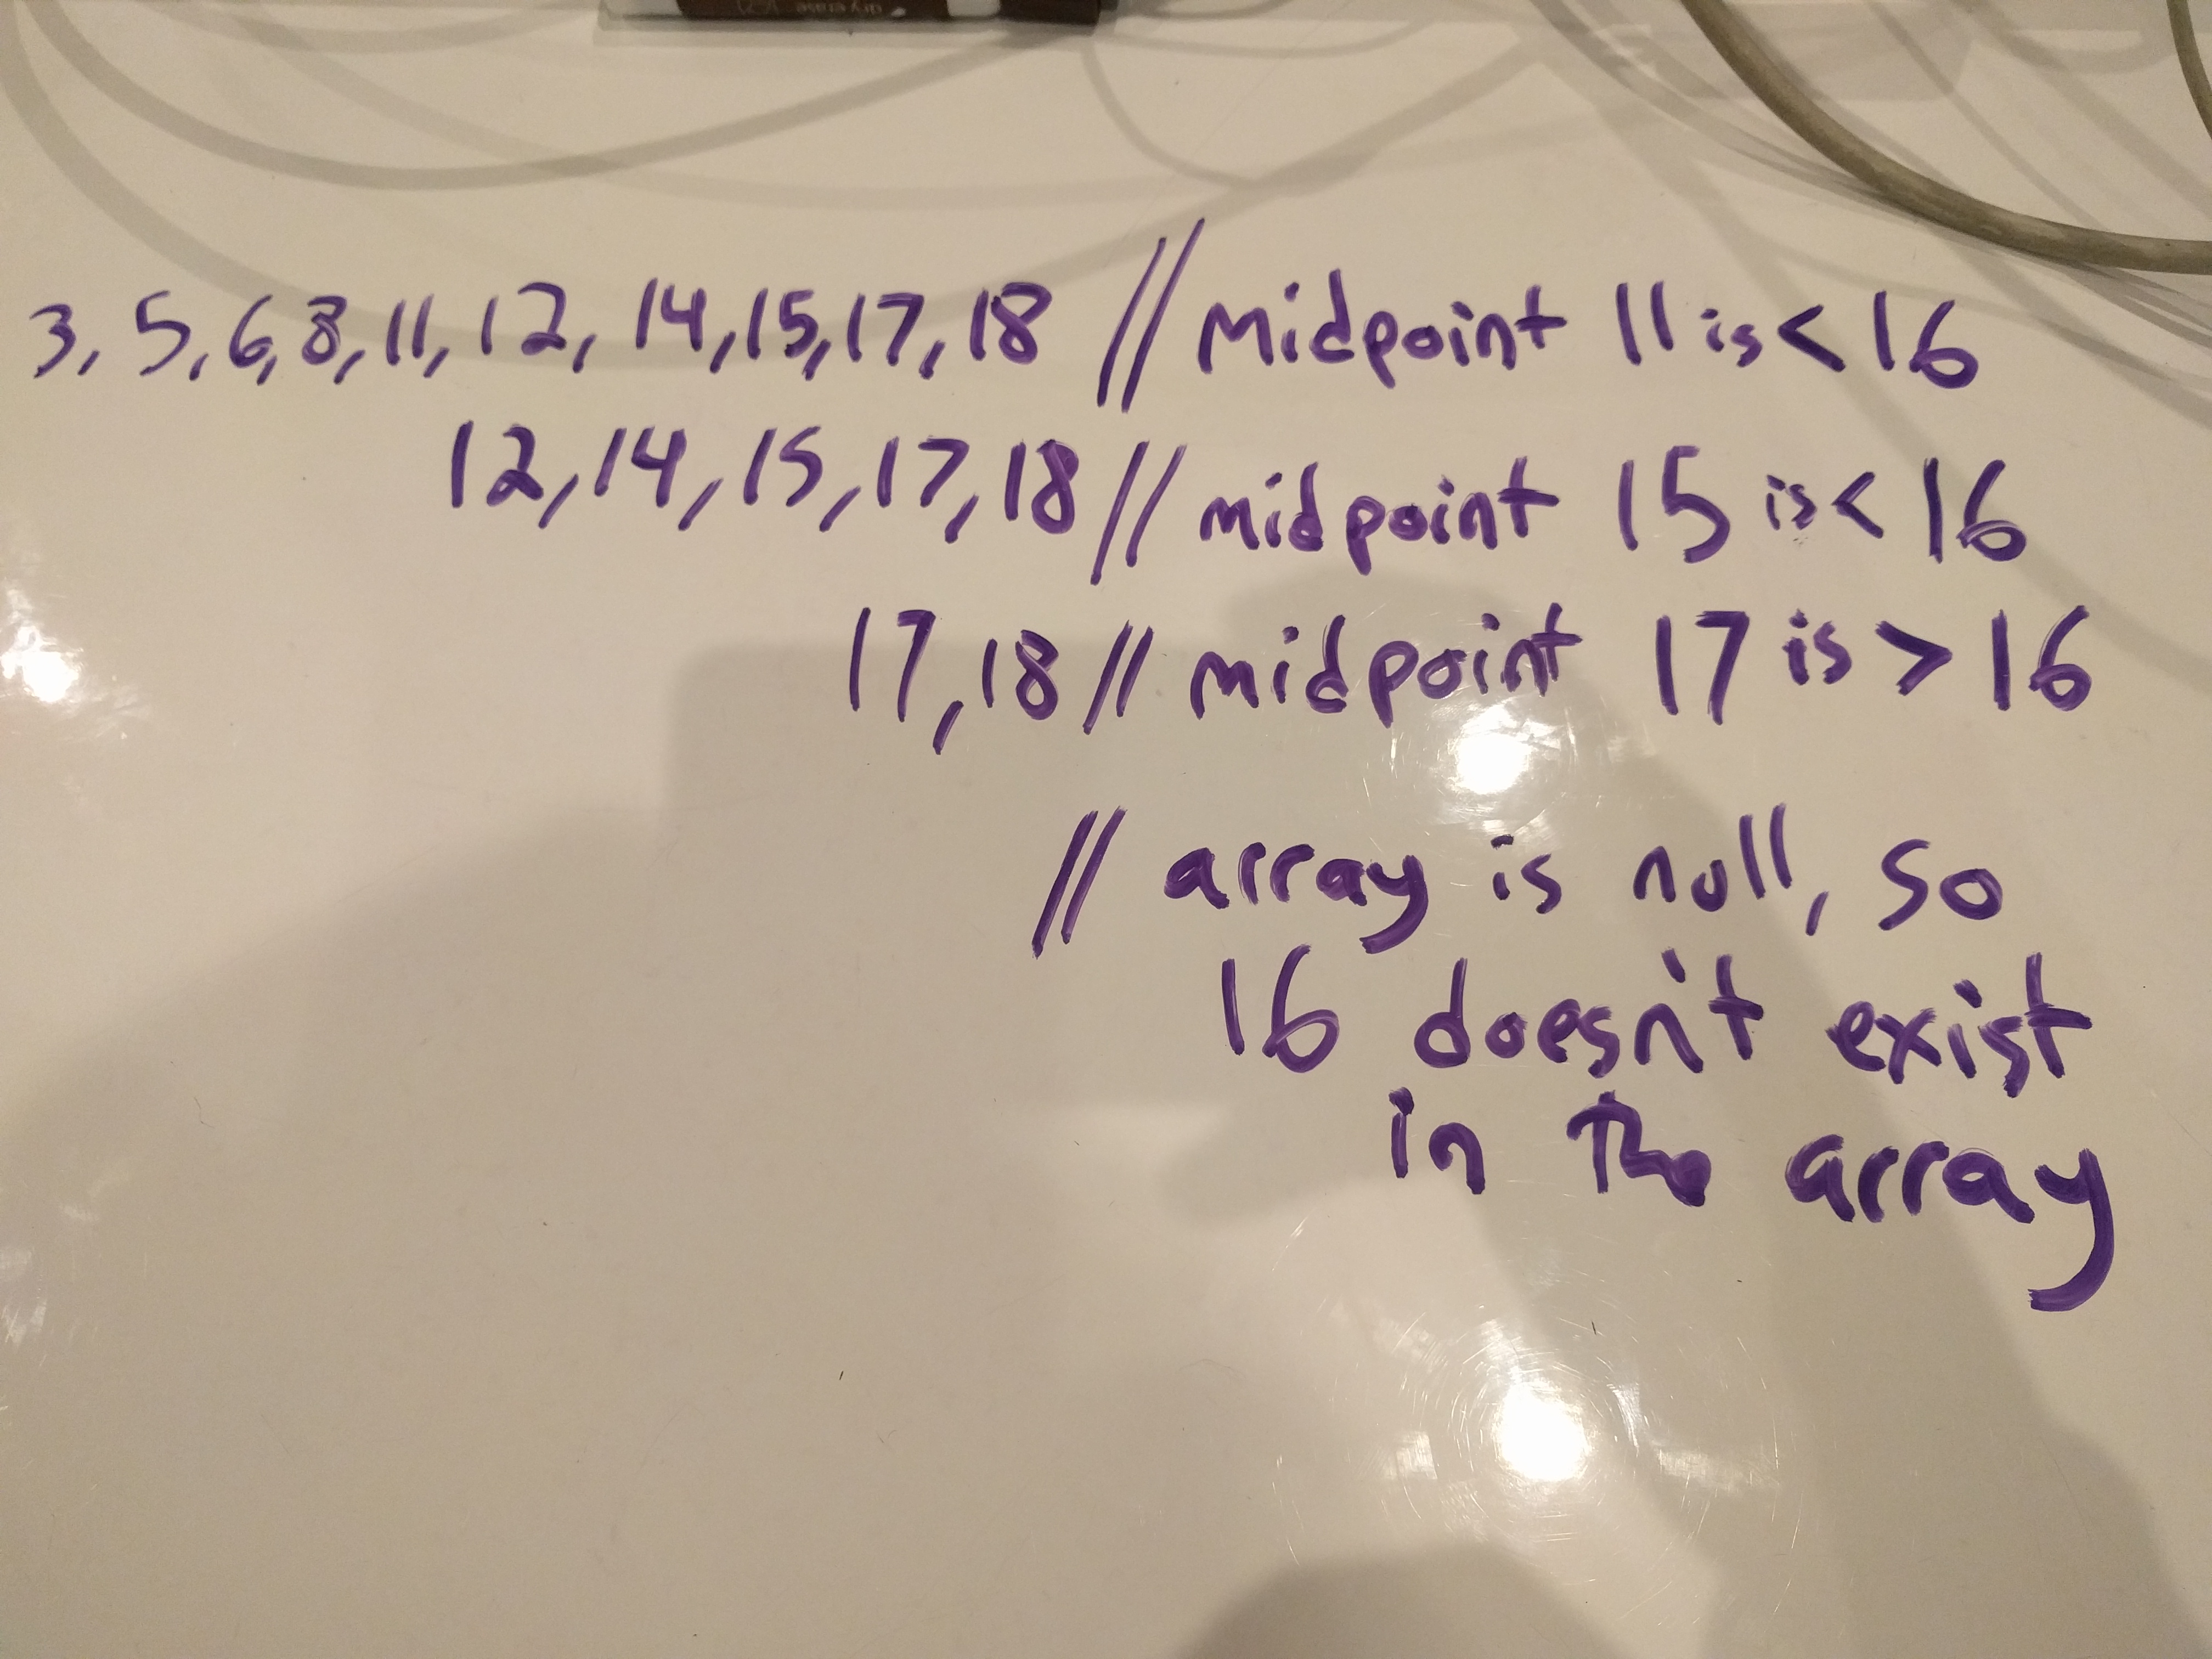 dry erase
3, 5, 6, 8, 11, 12, 14, 15, 17, 18 // Midpoint 11 is < 16
12, 14, 15, 17, 18 // midpoint 15 is < 16
17, 18 // midpoint 17 is > 16
// array is null, so
16 doesn't exist
in the array